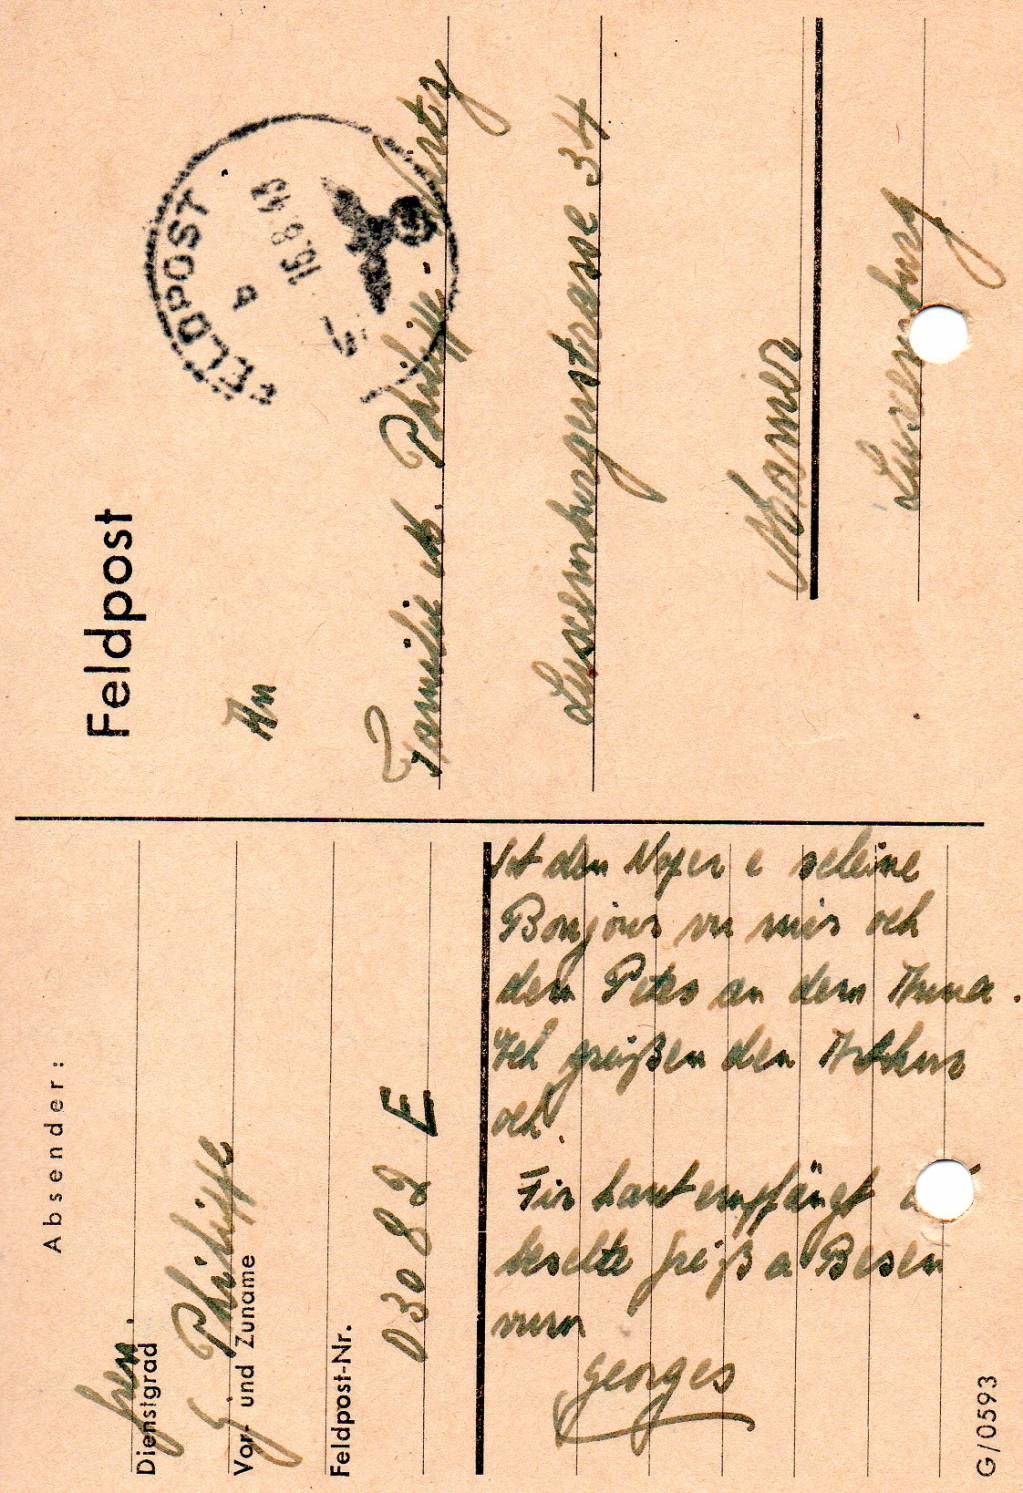 Feldpost
FELDPOST
b
15.8.43
An
Familie M. Philippe-Wirtz
Luxemburgerstrasse 34
Mamer
Luxemburg
Absender:
Gren.
Dienstgrad
G. Philippe
Vor- und Zuname
Feldpost-Nr.
03082 E
den e scheine
Bonjour vu mir och
dem Peter an dem Anna.
Ech greißen den Arthur
och.
Fir haut empfängt
beschte Greiß a Besen
vum
Georges
G/0593